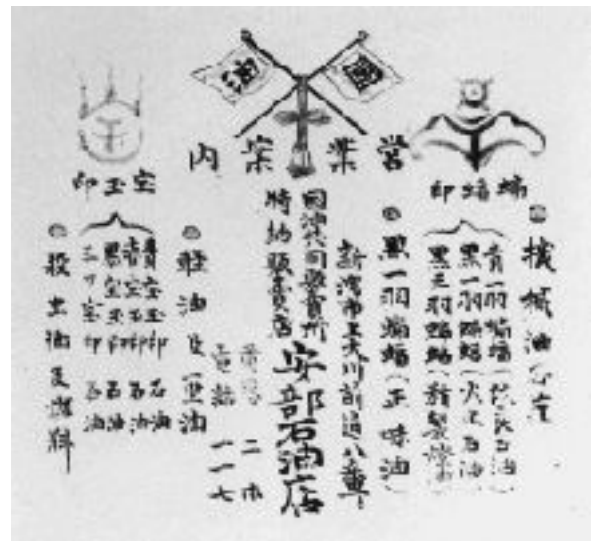 営業案内
蝙蝠印
機械油
青一羽蝙蝠
黒一羽蝙蝠(火止石油)
黒三羽蝙蝠
黒一羽蝙蝠(正味油)
新潟市上大川前通八番町
國油共同販賣所
特約販賣店
安部石油店
電話 一一七
軽油及重油
宝玉印
青宝玉印 石油
赤宝玉印 石油
黒宝玉印 石油
三ツ宝印 石油
油及燃料